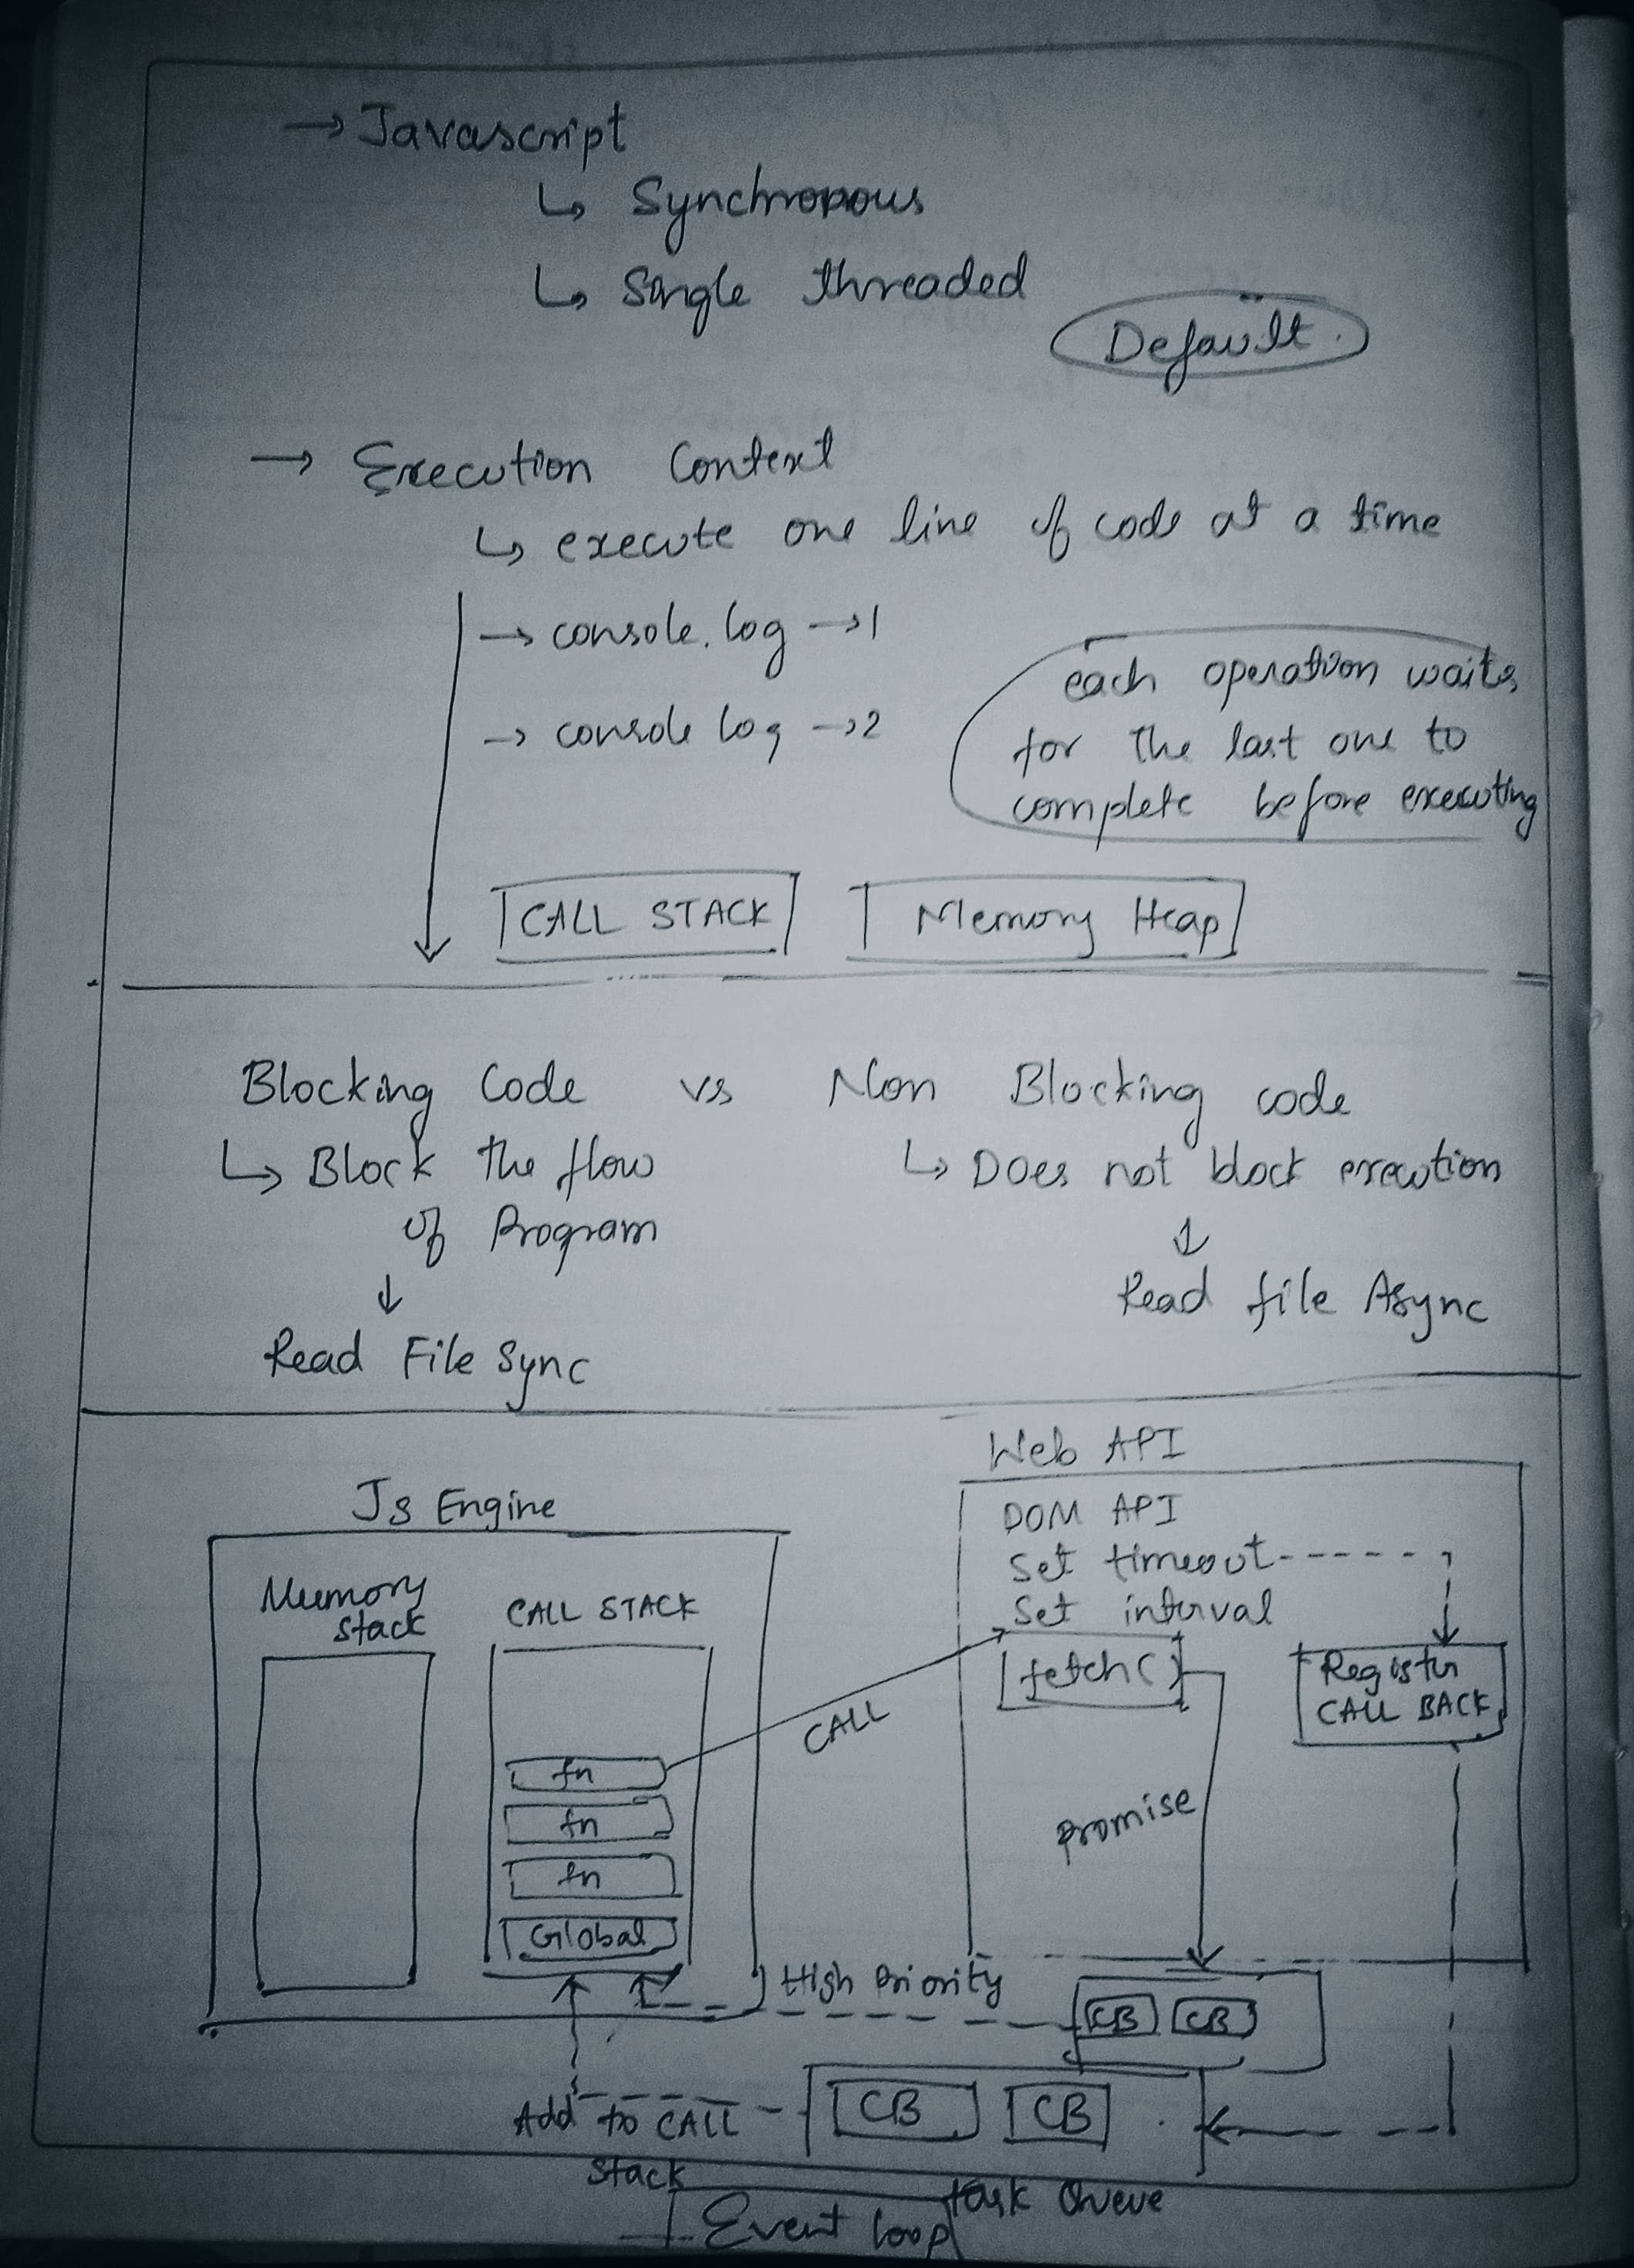 → Javascript
↳ Synchronous
↳ Single threaded
Default.
→ Execution Context
↳ execute one line of code at a time
→ console.log → 1
→ console log → 2
each operation waits
for the last one to
complete before executing
CALL STACK
Memory Heap
Blocking Code vs Non Blocking code
↳ Block the flow
of Program
↓
Read File Sync
↳ Does not block execution
↓
Read file Async
Js Engine
Memory
Stack
CALL STACK
fn
fn
fn
Global
CALL
Web API
DOM API
Set timeout
Set interval
fetch()
Register
CALL BACK
Promise
High Priority
CB CB
Add to CALL
Stack
CB CB
task Queue
Event loop